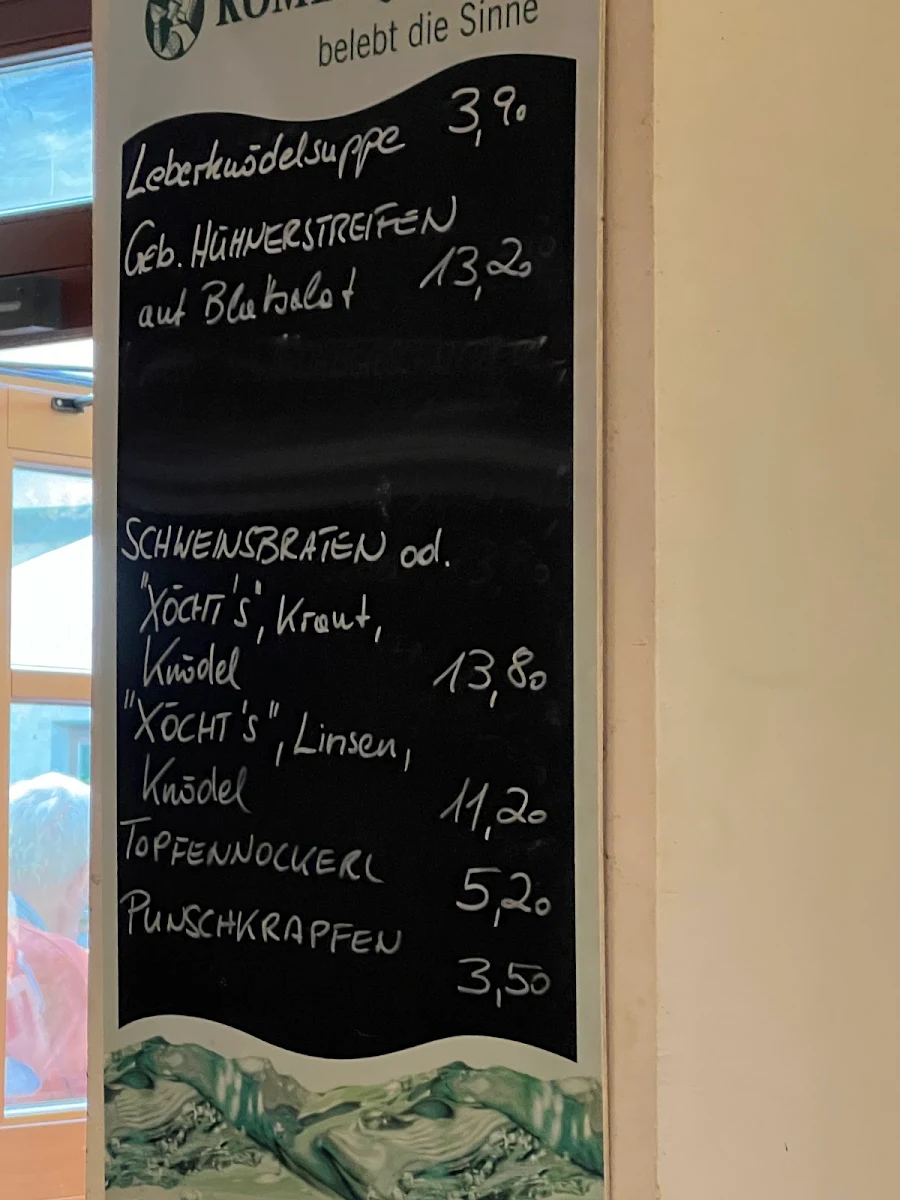 belebt die Sinne
Leberknödelsuppe 3,90
Geb. HÜHNERSTREIFEN
auf Blattsalat 13,20
SCHWEINSBRATEN od.
"XÖCHT'S", Kraut,
Knödel 13,80
"XÖCHT'S", Linsen,
Knödel 11,20
TOPFENNOCKERL 5,20
PUNSCHKRAPFEN 3,50